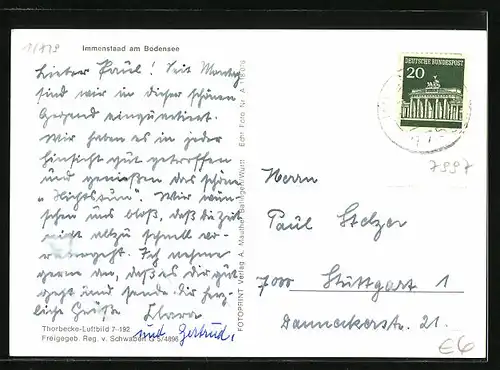 1/812
Immenstaad am Bodensee
Lieber Paul! Seit Montag
sind wir in dieser schönen
Gegend einquartiert.
Wir haben es in jeder
Hinsicht gut getroffen
und genießen das schöne
"Nichtstun". Wir wün-
schen uns bloß, daß die Zeit
nicht allzu schnell vo-
rübergeht. Ich nehme
gerne an, daß es dir gut
geht und sende dir herz-
liche Grüße Klara
und Gertrud.
Thorbecke-Luftbild 7-192
Freigegeb. Reg. v. Schwaben G 5/4896
FOTOPRINT Verlag A. Mauther Balingen/Württ Echt Foto Nr. A 118076
DEUTSCHE BUNDESPOST
20
7997
Herrn
Paul Stelzer
7000 Stuttgart 1
Danneckerstr. 21.
€6